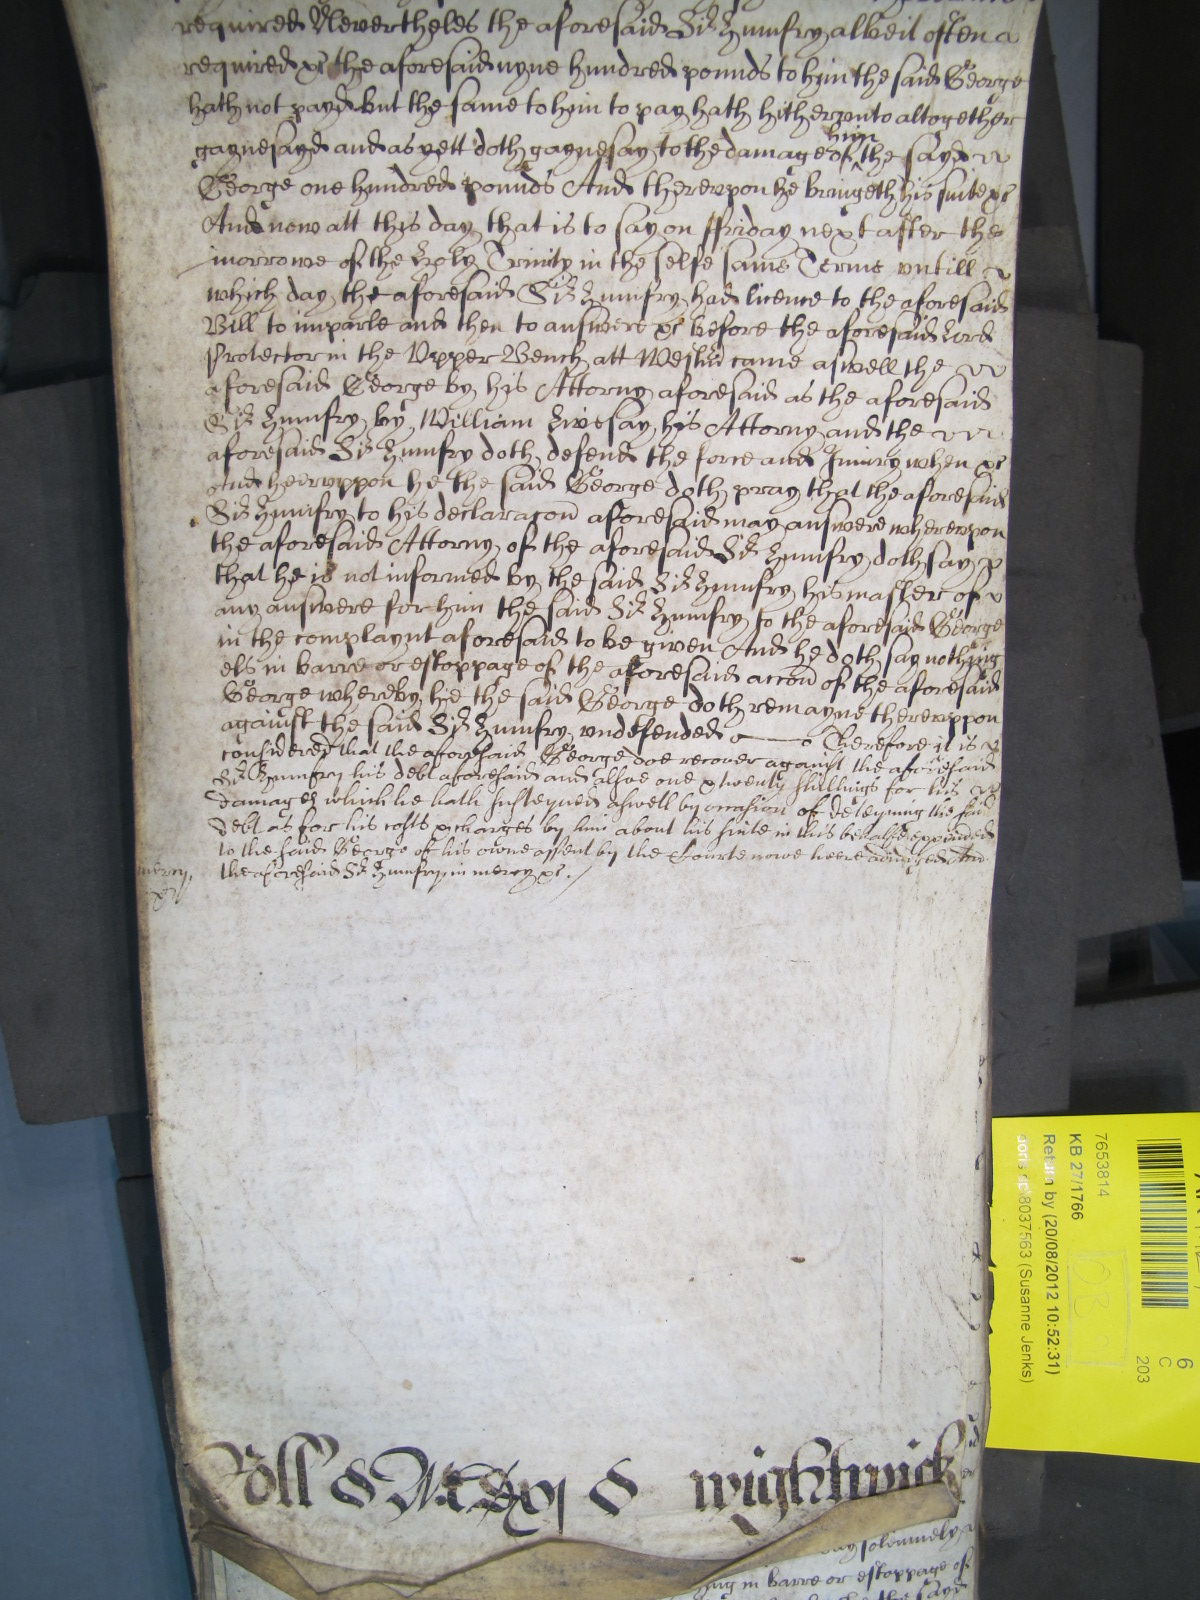 required Nevertheles the aforesaid Sir Humfry albeit often
required &c the aforesaid nyne hundred pounds to him the said George
hath not payd But the same to him to pay hath hitherunto altogether
gaynesayd and as yett doth gaynesay to the damage of him the sayd
George one hundred pounds And therewpon he bringeth his suite &c
And now att this day that is to say on ffriday next after the
morrowe of the Holy Trinity in the selfe same Terme untill
which day the aforesaid Sir Humfry had licence to the aforesaid
Bill to imparle and then to answere &c before the aforesaid Lord
Protector in the Upper Bench att Westm came aswell the
aforesaid George by his Attorny aforesaid as the aforesaid
Sir Humfry by William Livesay his Attorny and the
aforesaid Sir Humfry doth defend the force and Iniury when &c
And hereuppon he the said George doth pray that the aforesaid
Sir Humfry to his declaracon aforesaid may answere wherewpon
the aforesaid Attorny of the aforesaid Sir Humfry doth say
that he is not informed by the said Sir Humfry his master of
any answere for him the said Sir Humfry to the aforesaid George
in the complaynt aforesaid to be given And he doth say nothing
els in barre or estoppage of the aforesaid accon of the aforesaid
George whereby hee the said George doth remayne therewppon
against the said Sir Humfry undefended Therefore it is
considered that the aforesaid George doe recover against the aforesaid
Sir Humfry his debt aforesaid and alsoe one & twenty shillings for his
damages which he hath susteyned aswell by occasion of deteyning the said
debt as for his costs & charges by him about his suite in this behalfe expended
to the said George of his owne assent by the Courte nowe heere adiudged And
the aforesaid Sir Humfry in mercy &c.
mercy
Roll wightwick
say solemnely
ing in barre or estoppage of
the sayd
7653814
KB 27/1766
Return by (20/08/2012 10:52:31)
8037563 (Susanne Jenks)
6
C
203